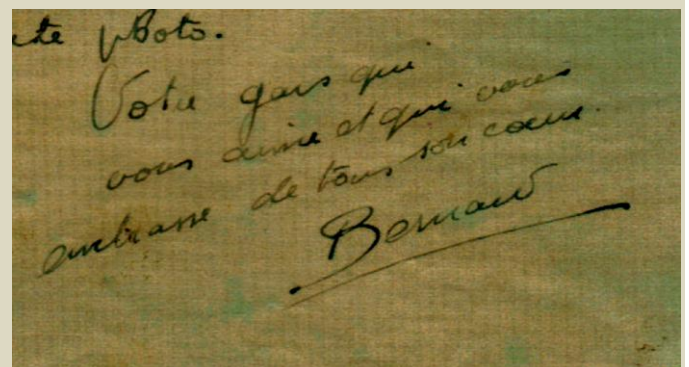 photo.
Votre gars qui
vous aime et qui vous
embrasse de tous son cœur.
Bernard